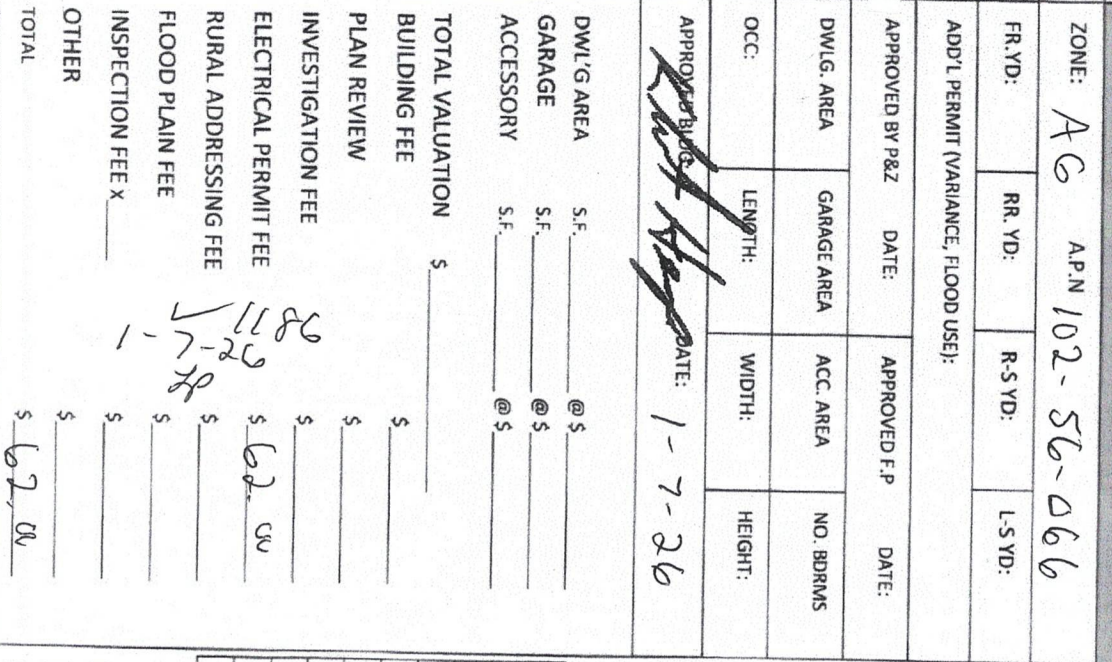 ZONE: AG A.P.N 102-56-066
FR.YD: RR. YD: R-S YD: L-S YD:
ADD'L PERMIT (VARIANCE, FLOOD USE):
APPROVED BY P&Z DATE: APPROVED F.P DATE:
DWLG. AREA GARAGE AREA ACC. AREA NO. BDRMS
OCC: LENGTH: WIDTH: HEIGHT:
APPROVED BLDG. DATE: 1-7-26
DWL'G AREA S.F. @ $
GARAGE S.F. @ $
ACCESSORY S.F. @ $
TOTAL VALUATION $
BUILDING FEE $
PLAN REVIEW $
INVESTIGATION FEE $
ELECTRICAL PERMIT FEE $ 62.00
RURAL ADDRESSING FEE $
FLOOD PLAIN FEE $
INSPECTION FEE X $
OTHER $
TOTAL $ 62.00